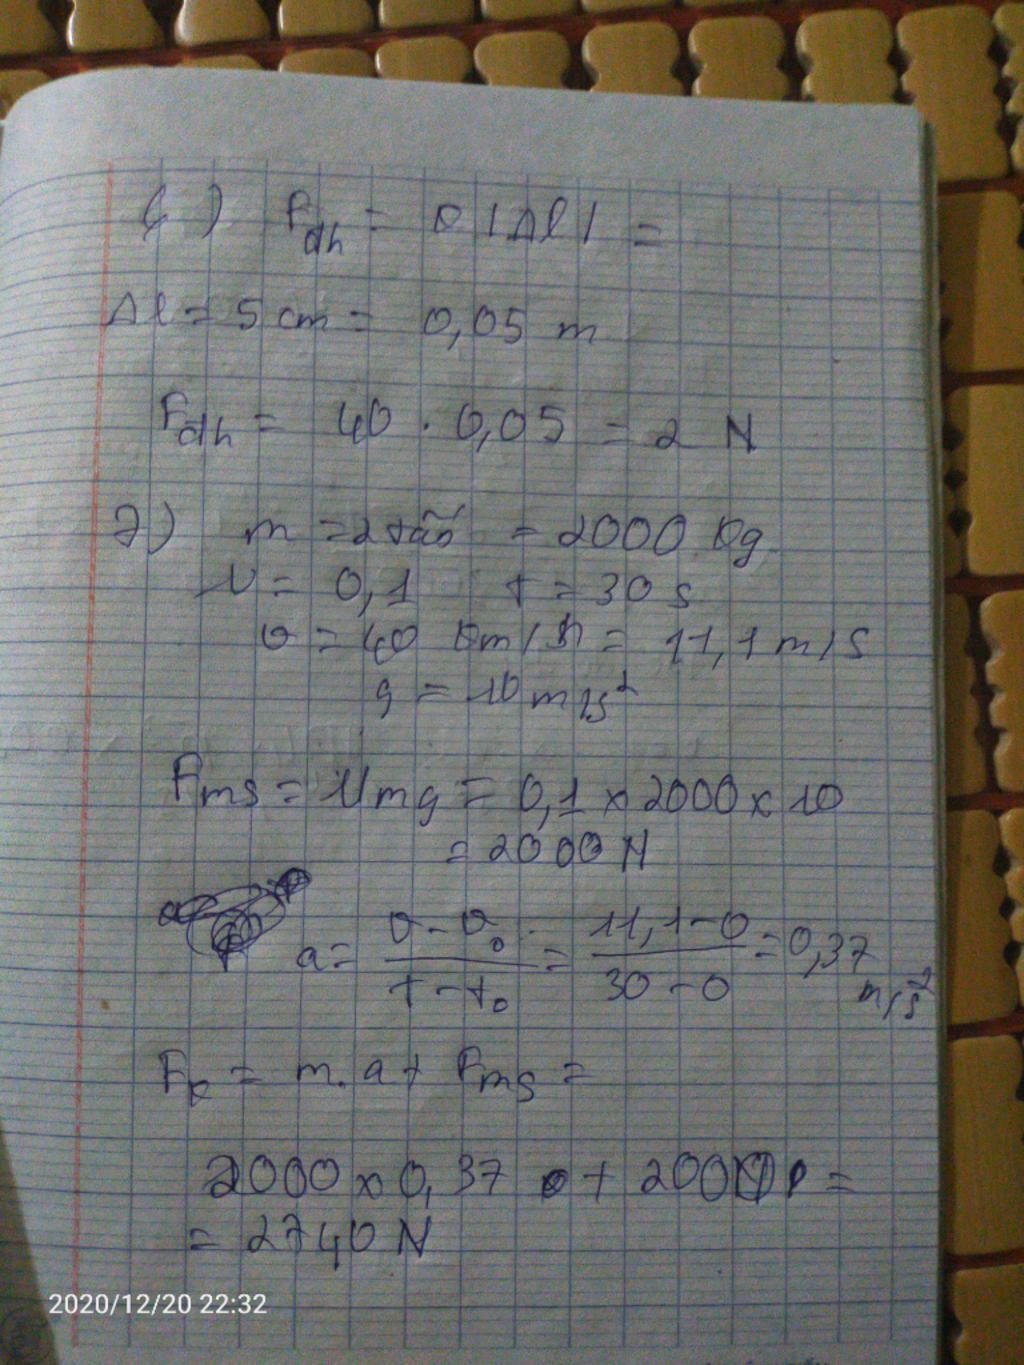 6) Fđh = k |Δl| =
Δl = 5 cm = 0,05 m
Fđh = 40 . 0,05 = 2 N
7) m = 2 tấn = 2000 kg
μ = 0,1 t = 30 s
v = 40 km/h = 11,1 m/s
g = 10 m/s²
Fms = μmg = 0,1 x 2000 x 10
= 2000 N
a = (v - v₀)/(t - t₀) = (11,1 - 0)/(30 - 0) = 0,37 m/s²
Fk = m. a + Fms =
2000 x 0,37 + 2000 =
= 2740 N
2020/12/20 22:32